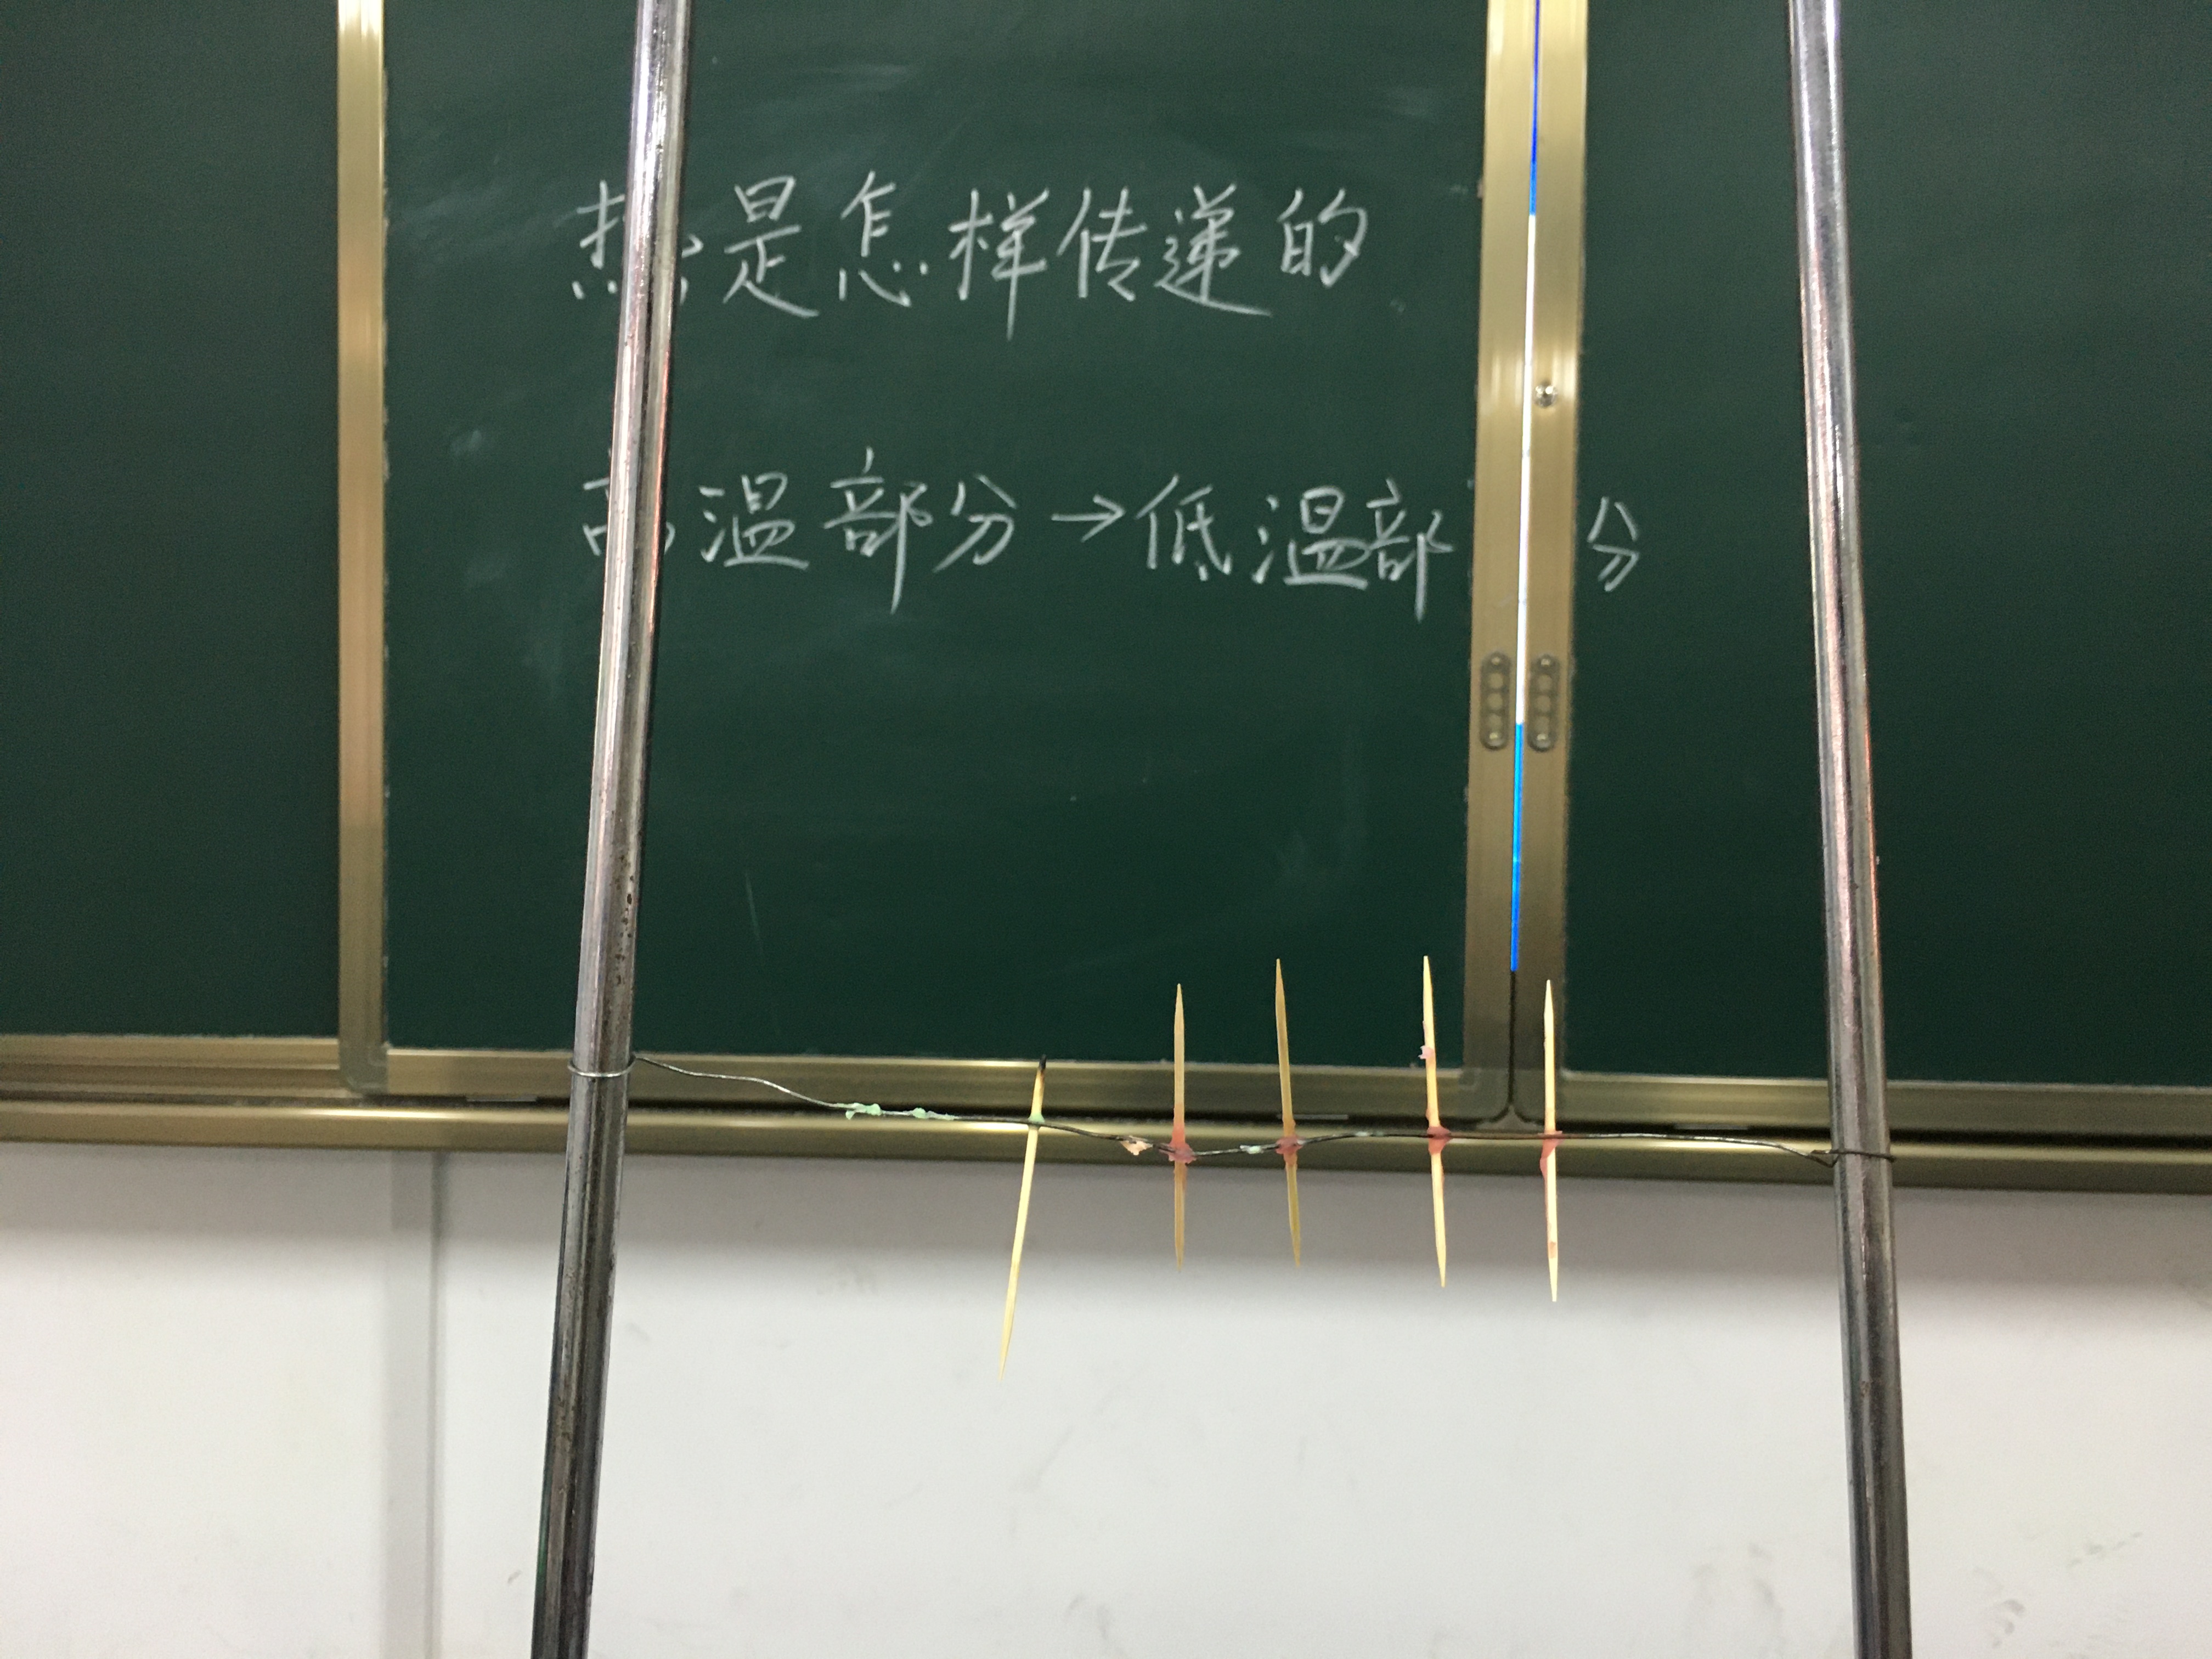 热是怎样传递的
高温部分→低温部分